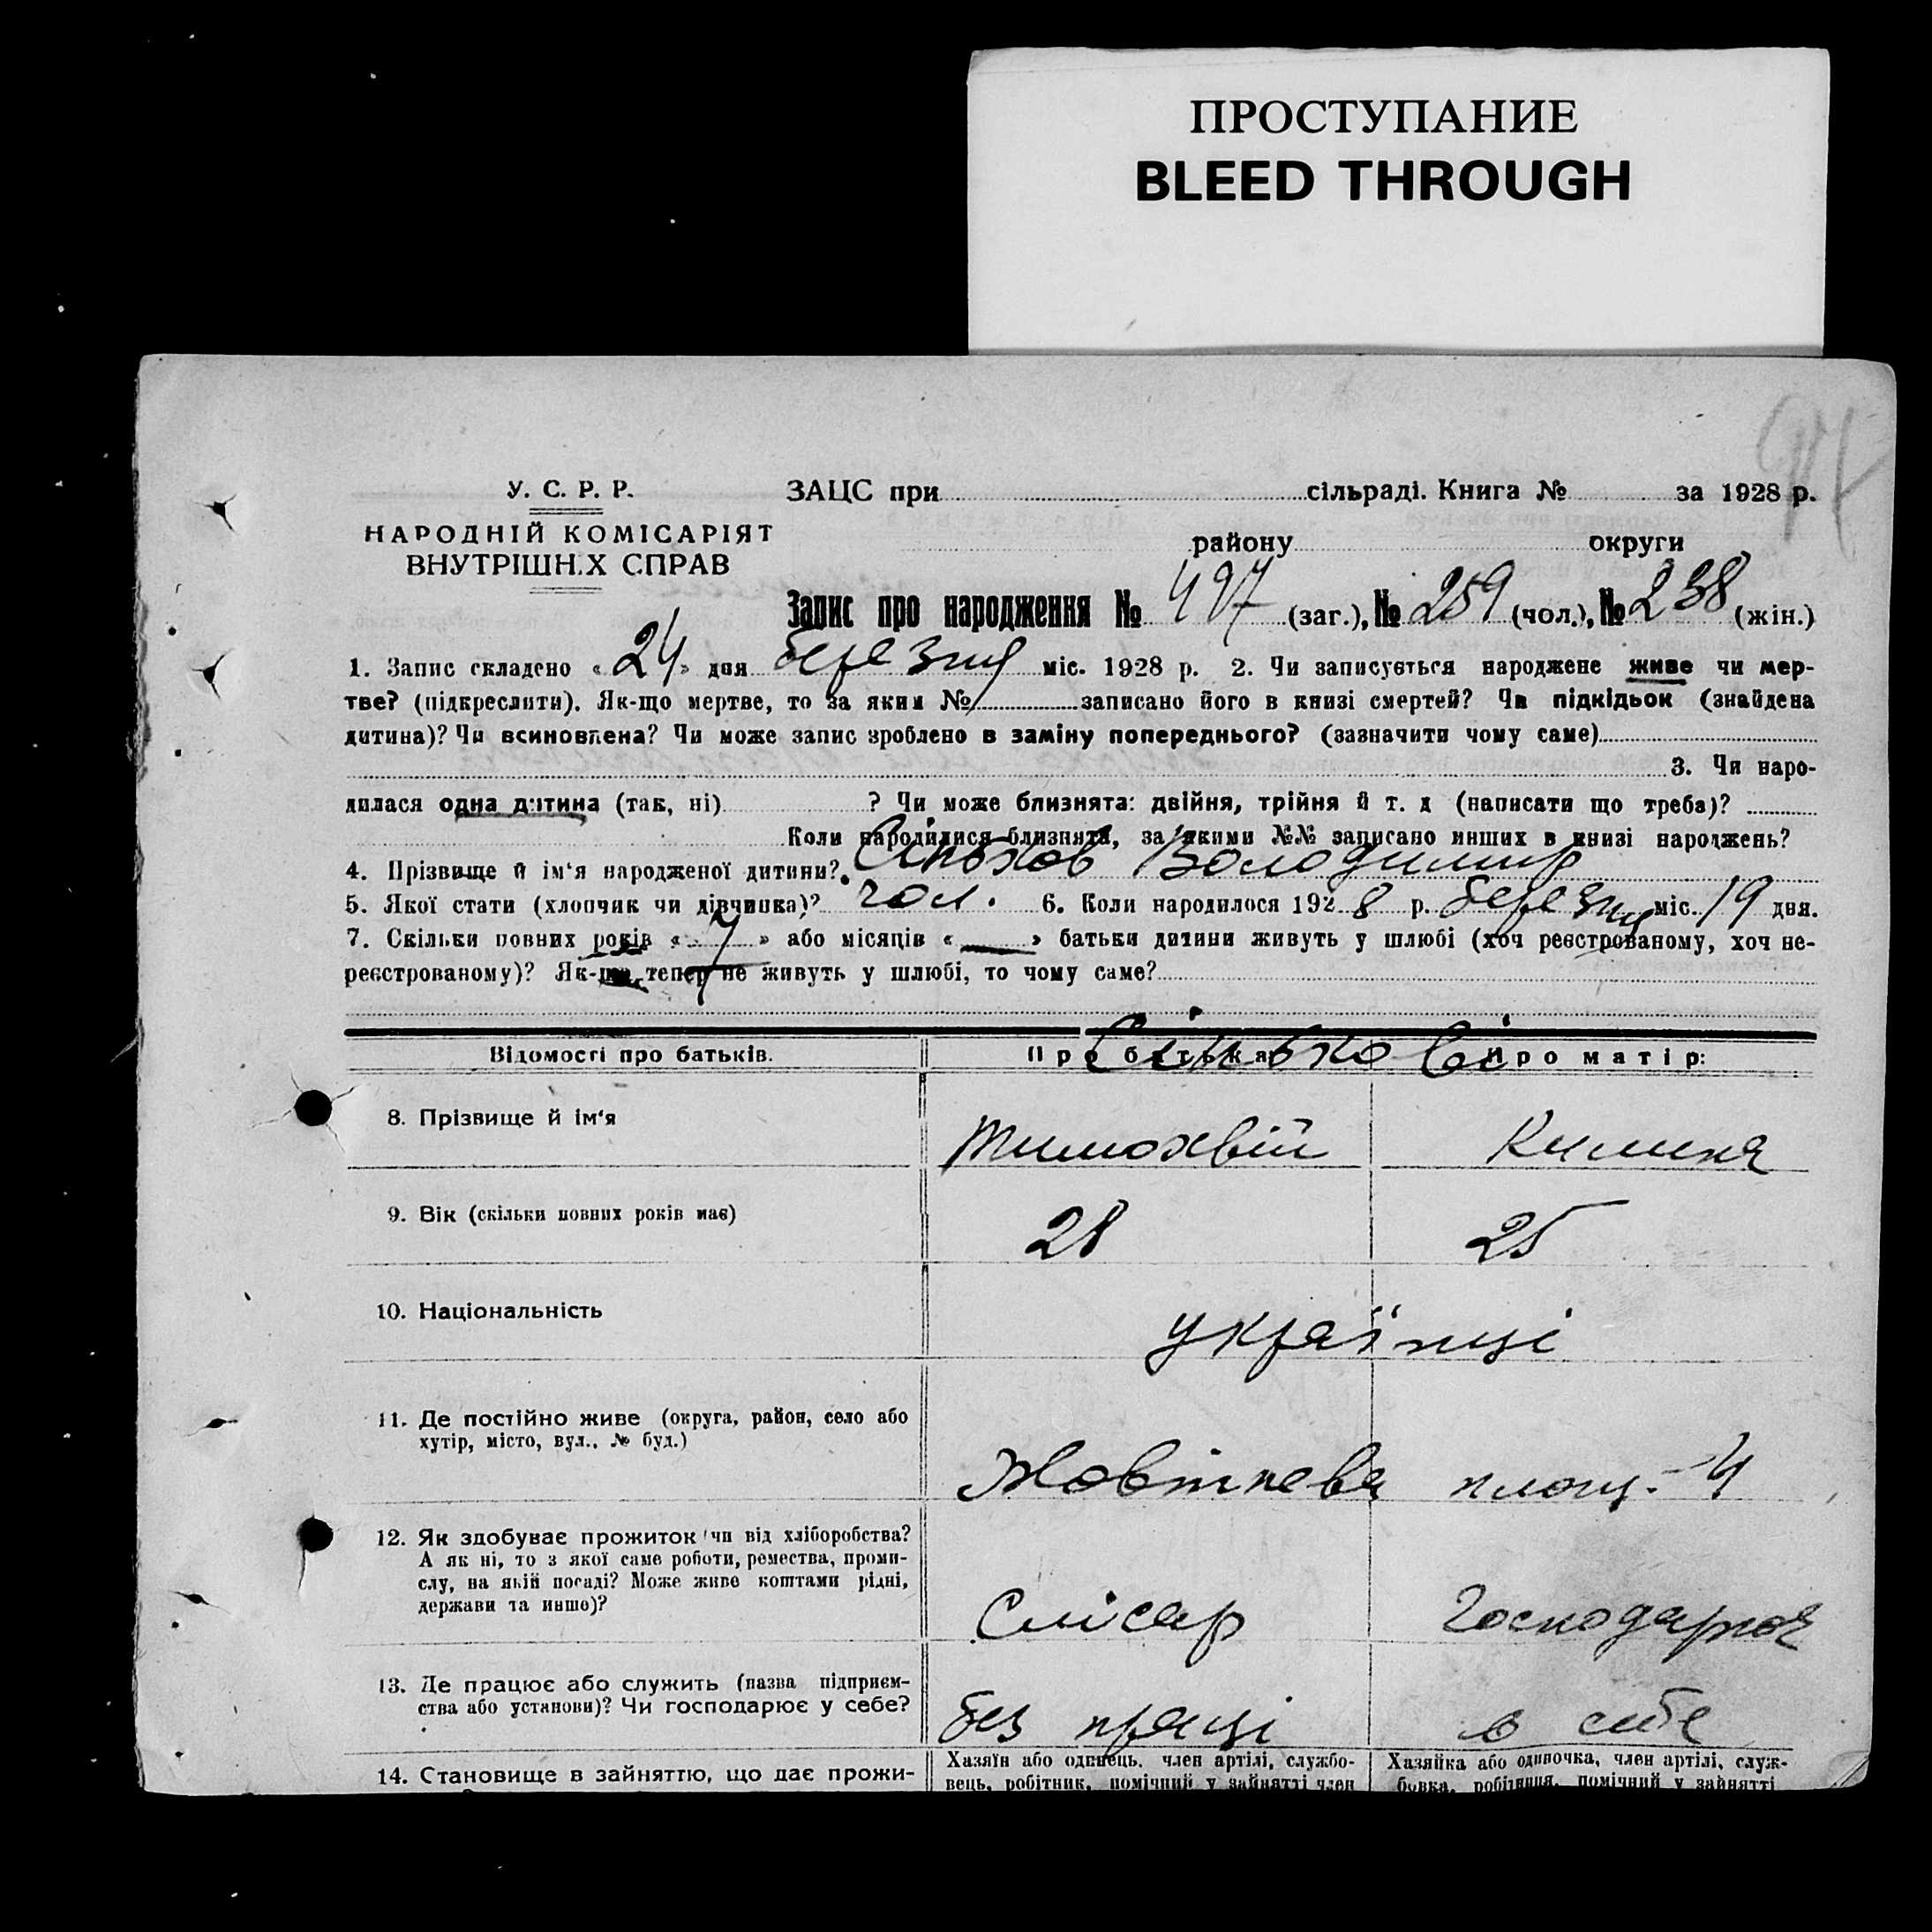 ПРОСТУПАНИЕ
BLEED THROUGH
У. С. Р. Р.
НАРОДНІЙ КОМІСАРІЯТ
ВНУТРІШН.Х СПРАВ
ЗАЦС при сільраді. Книга № за 1928 р.
району округи
Запис про народження № 497 (заг.), № 259 (чол.), № 238 (жін.)
1. Запис складено « 24 » дня березня міс. 1928 р. 2. Чи записується народжене живе чи мер-
тве? (підкреслити). Як-що мертве, то за яким № записано його в книзі смертей? Чи підкідьок (знайдена
дитина)? Чи всиновлена? Чи може запис зроблено в заміну попереднього? (зазначити чому саме)
3. Чи наро-
дилася одна дитина (так, ні) ? Чи може близнята: двійня, трійня й т. д (написати що треба)?
Коли народилися близнята, за якими №№ записано инших в книзі народжень?
4. Прізвище й ім'я народженої дитини? Сіньков Володимир
5. Якої стати (хлопчик чи дівчинка)? чол. 6. Коли народилося 1928 р. березня міс. 19 дня.
7. Скільки повних років « 7 » або місяців « — » батьки дитини живуть у шлюбі (хоч реєстрованому, хоч не-
реєстрованому)? Як-що тепер не живуть у шлюбі, то чому саме?
Відомості про батьків. Про батька: Про матір:
Сінькові
8. Прізвище й ім'я Тимохвій Килина
9. Вік (скільки повних років має) 28 25
10. Національність українці
11. Де постійно живе (округа, район, село або
хутір, місто, вул., № буд.)
Жовтнева площ. - 4
12. Як здобуває прожиток чи від хліборобства?
А як ні, то з якої саме роботи, ремества, проми-
слу, на якій посаді? Може живе коштами рідні,
держави та инше)?
Слюсар Господарює
13. Де працює або служить (назва підприєм-
ства або установи)? Чи господарює у себе?
без праці в себе
14. Становище в зайняттю, що дає прожи-
Хазяїн або одинець, член артілі, службо-
вець, робітник, помічний у зайнятті член
Хазяйка або одиночка, член артілі, служ-
бовка, робітниця, помічний у зайнятті